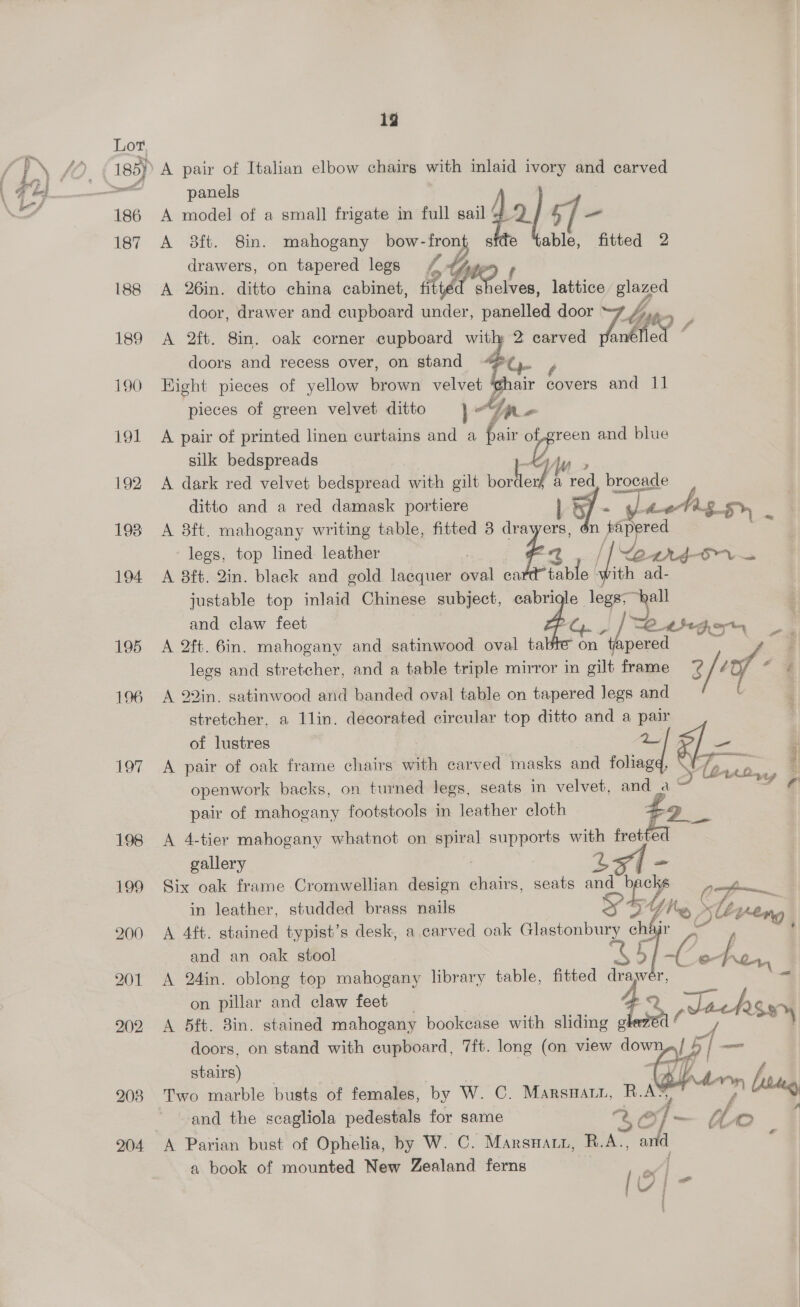 12
Lot
185 A pair of Italian elbow chairs with inlaid ivory and carved
panels
186 A model of a small frigate in full sail
187 A 3ft. 8in. mahogany bow-front side table, fitted 2
drawers, on tapered legs
188 A 26in. ditto china cabinet, fitted shelves, lattice glazed
door, drawer and cupboard under, panelled door
189 A 2ft. 8in. oak corner cupboard with 2 carved panelled
doors and recess over, on stand
190 Eight pieces of yellow brown velvet chair covers and 11
pieces of green velvet ditto
191 A pair of printed linen curtains and a pair of green and blue
silk bedspreads
192 A dark red velvet bedspread with gilt border, a red brocade
ditto and a red damask portiere
193 A 3ft. mahogany writing table, fitted 3 drawers, on tapered
legs, top lined leather
194 A 3ft. 2in. black and gold lacquer oval card table with ad-
justable top inlaid Chinese subject, cabriole legs, ball
and claw feet
195 A 2ft. 6in. mahogany and satinwood oval table on tapered
legs and stretcher, and a table triple mirror in gilt frame
196 A 22in. satinwood and banded oval table on tapered legs and
stretcher, a 11in. decorated circular top ditto and a pair
of lustres
197 A pair of oak frame chairs with carved masks and foliaged,
openwork backs, on turned legs, seats in velvet, and a
pair of mahogany footstools in leather cloth
198 A 4-tier mahogany whatnot on spiral supports with fretted
gallery
199 Six oak frame Cromwellian design chairs, seats and backs
in leather, studded brass nails
200 A 4ft. stained typist's desk, a carved oak Glastonbury chair
and an oak stool 35/- Cohen
201 A 24in. oblong top mahogany library table, fitted drawer,
on pillar and claw feet Jackson
202 A 5ft. 3in. stained mahogany bookcase with sliding glazed
doors, on stand with cupboard, 7ft. long (on view down
stairs)
203 Two marble busts of females, by W. C. MARSHALL, R.A.,
and the scagliola pedestals for same
204 A Parian bust of Ophelia, by W. C. MARSHALL, R.A., and
a book of mounted New Zealand ferns
10/-